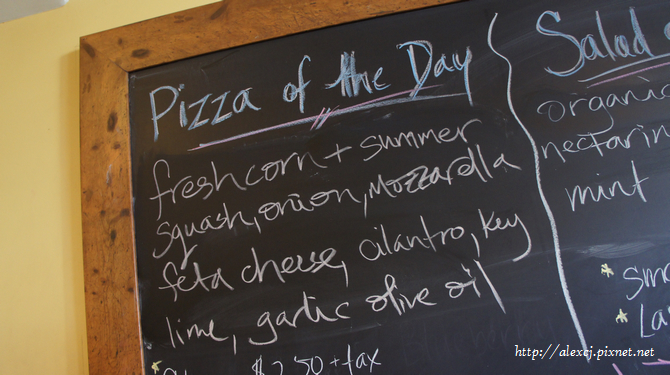 Pizza of the Day
fresh corn + summer
squash, onion, mozzarella
feta cheese, cilantro, key
lime, garlic olive oil
$2.50 + tax
Salad
organic
nectarin
mint
* smo
* La
http://alexcj.pixnet.net